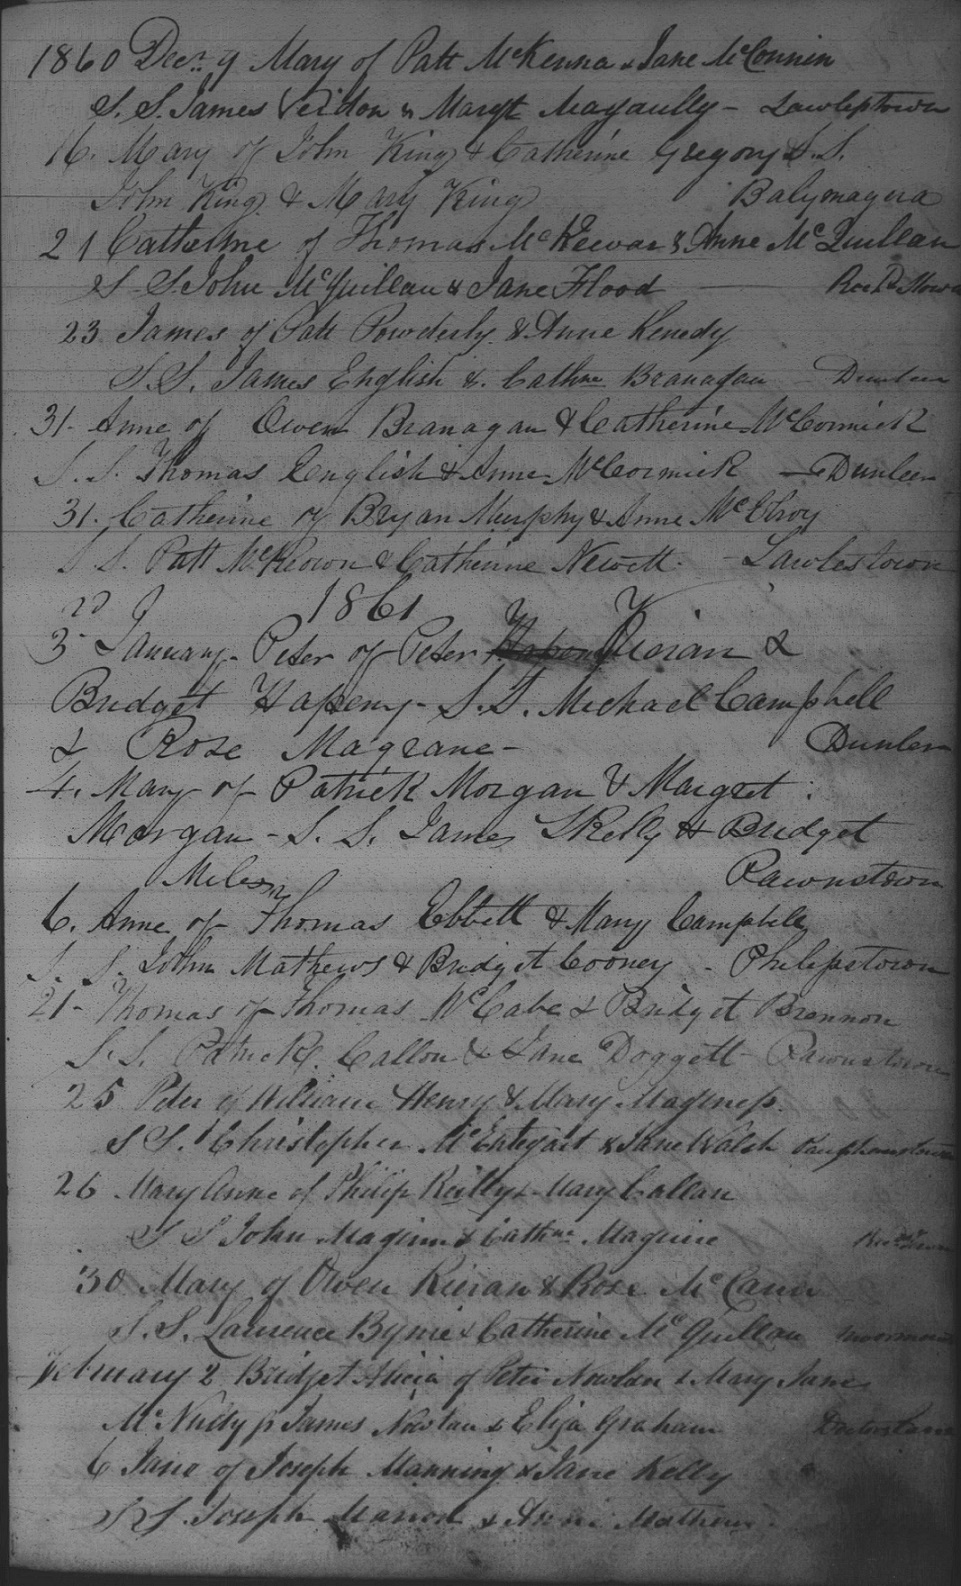 1860 Decr. 9 Mary of Patt McKenna & Jane McConnin
S. S. James Verdon & Margt Magaully - Lawlestown
16. Mary of John King & Catherine Gregory S. S.
John King & Mary King Balymagera
21 Catherine of Thomas McKeevar & Anne McQuillan
S S John McQuillan & Jane Flood
23 James of Patt Powderly & Anne Kenedy
S. S. James English & Cathne Branagan - Dunleer
31. Anne of Owen Branagan & Catherine McCormick
S. S. Thomas English & Anne McCormick - Dunleer
31. Catherine of Bryan Murphy & Anne McElroy
S S. Patt McKeown & Catherine Newett - Lawlestown
1861
3rd January - Peter of Peter Kieran &
Bridget Hapeny - S. S. Michael Campbell
& Rose Magrane - Dunleer
4. Mary of Patrick Morgan & Margret
Morgan - S. S. James Skelly & Bridget
Miles Pawnstown
6. Anne of Thomas Ebbett & Mary Campbell
S. S. John Mathews & Bridget Cooney - Philipstown
21 - Thomas of Thomas McCabe & Bridget Brennon
S. S. Patrick Callon & Jane Doggett - Pawnstown
25 Peter of William Henry & Mary Maginess
S S. Christopher McEntegart & Jane Walsh
26 Mary Anne of Philip Reilly & Mary Callan
S S John Maginn & Cathne Maguire
30 Mary of Owen Kieran & Rose McCann
S. S. Laurence Byrne & Catherine McQuillan
February 2 Bridget Alicia of Peter Nowlan & Mary Jane
McNulty p James Nowlan & Eliza Graham
6 Jane of Joseph Manning & Jane Kelly
S S. Joseph & Anne Mathews